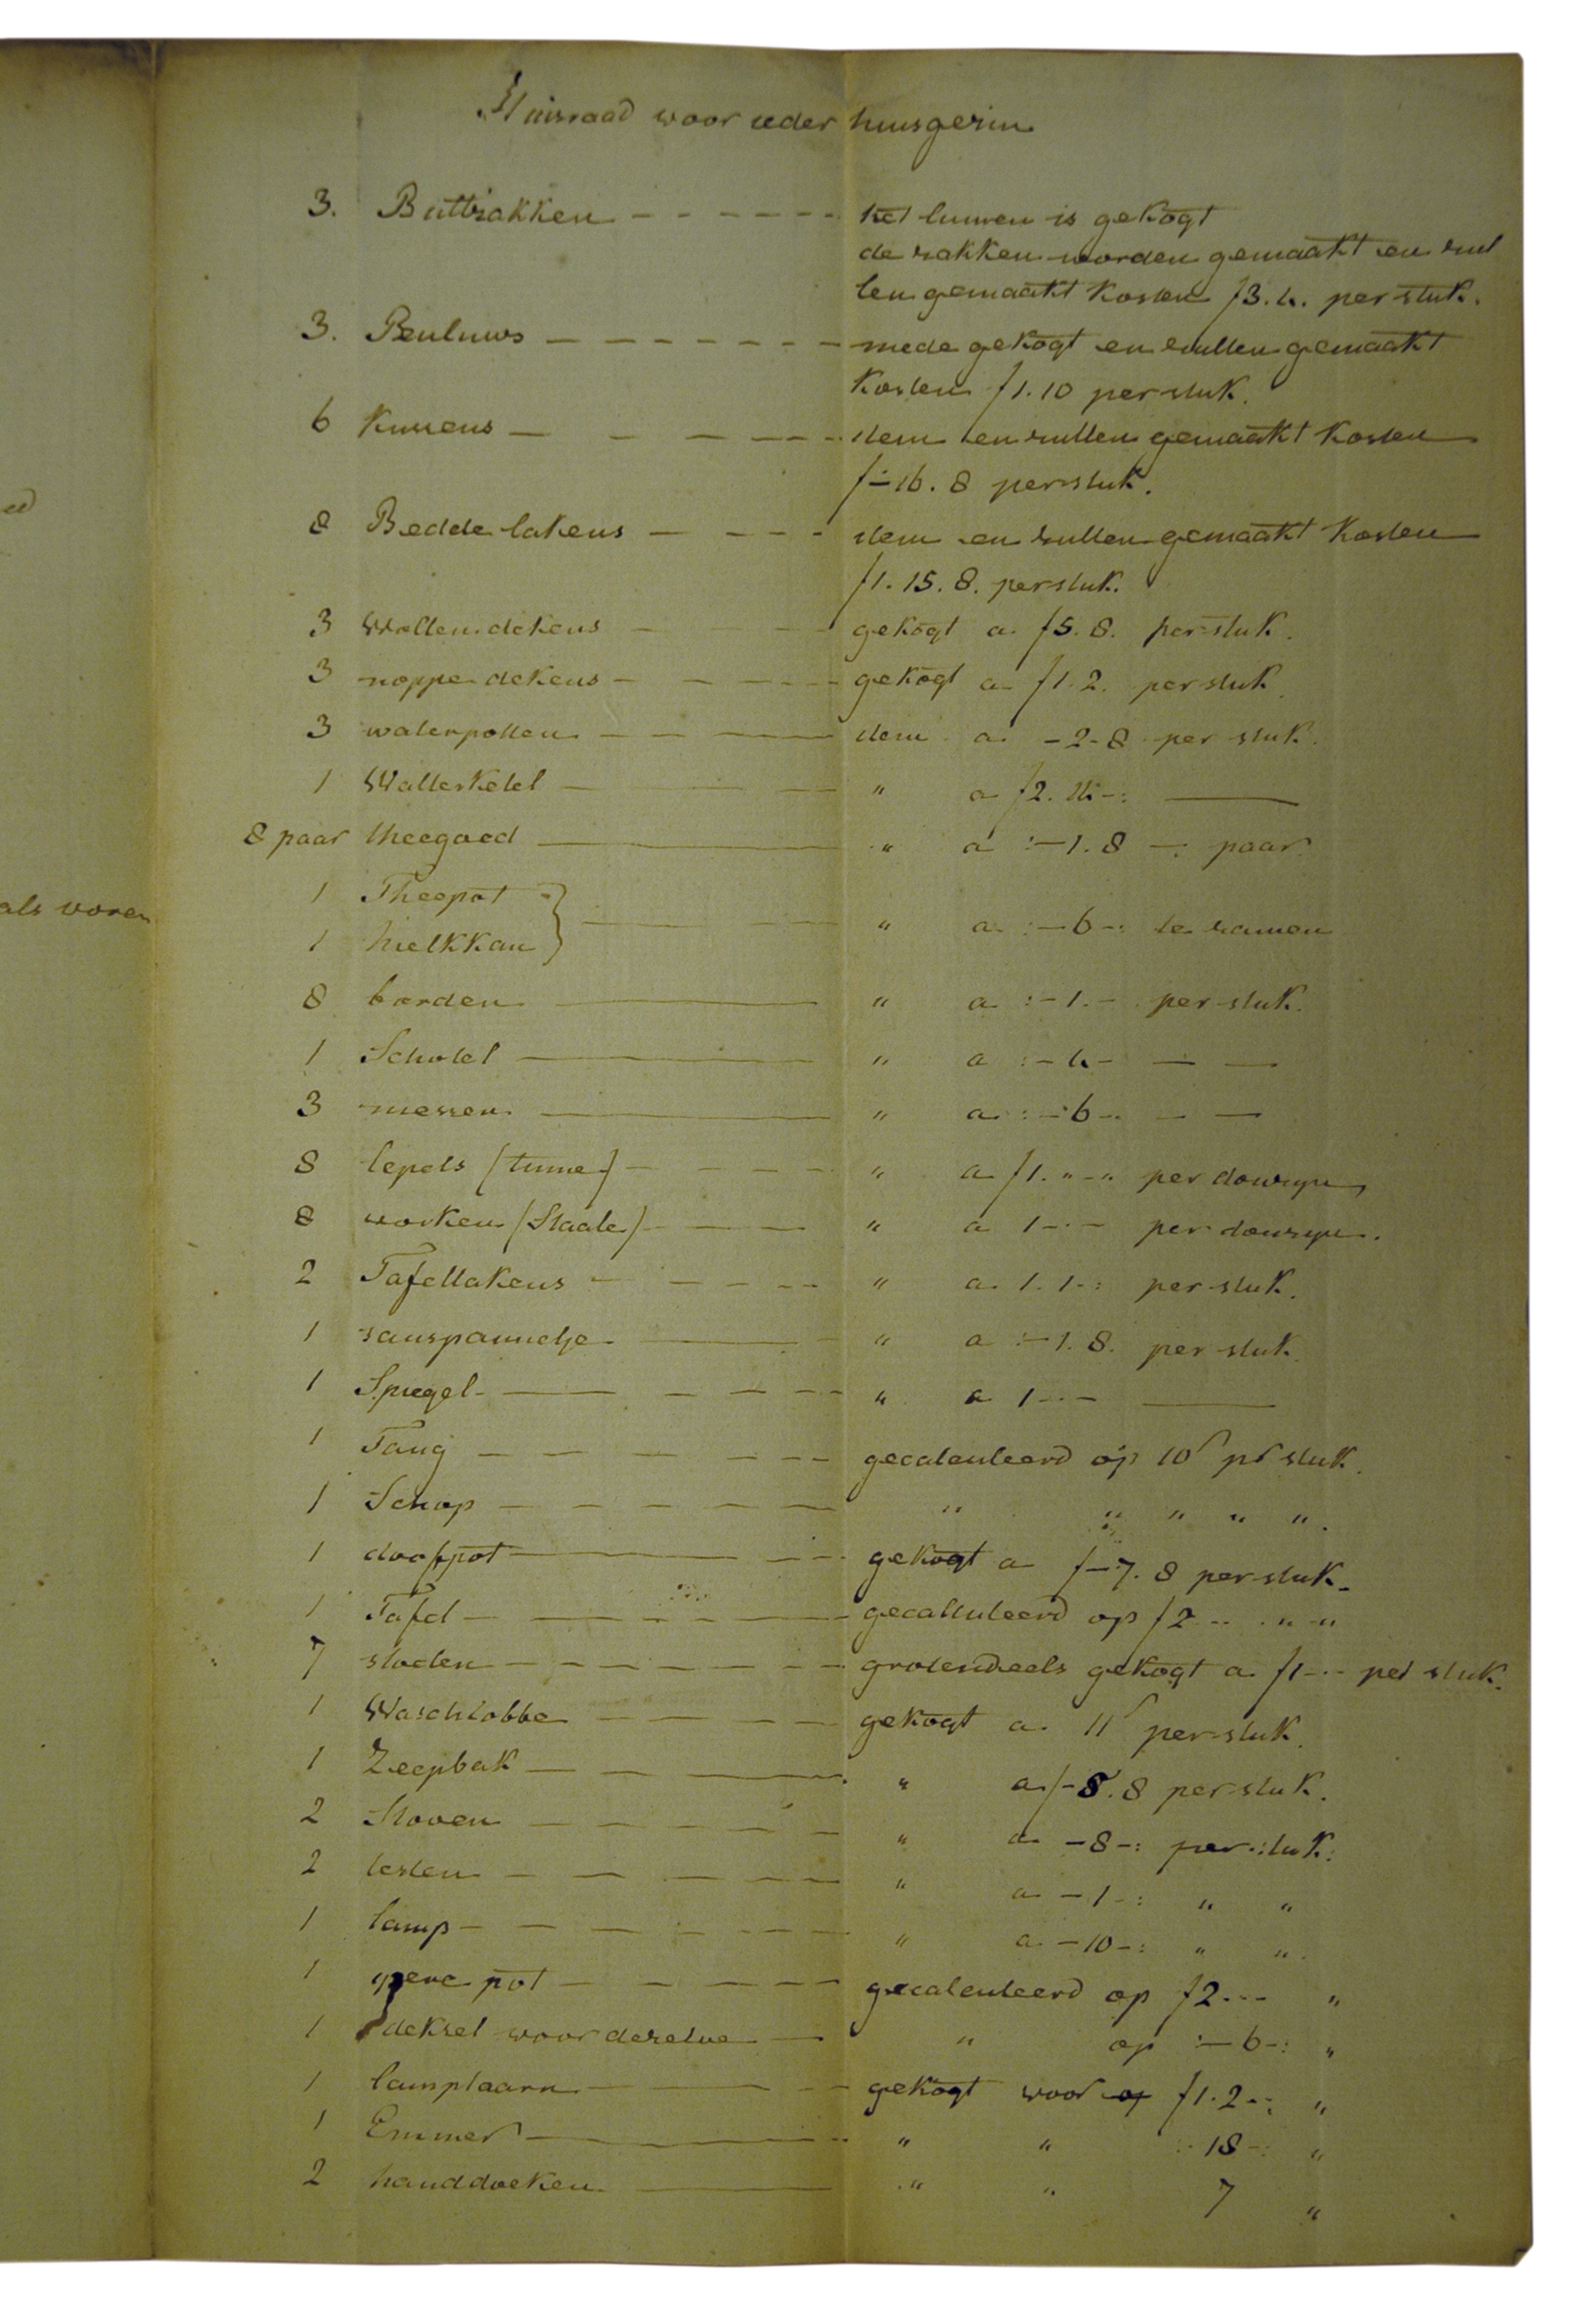 Huisraad voor ieder huisgesin
3. Bultzakken - - - - - - - het linnen is gekogt
de zakken worden gemaakt en zul
len gemaakt kosten f3.4. per stuk.
3. Peuluws - - - - - - - mede gekogt en zullen gemaakt
kosten f1.10 per stuk.
6 Kussens - - - - - idem en zullen gemaakt kosten
f - 16. 8 per stuk.
8 Bedde lakens - - - - idem en zullen gemaakt kosten
f1. 15. 8. per stuk.
3 Wollen dekens - - gekogt a f5. 8. per stuk.
3 noppe dekens - - - - gekogt a f1. 2. per stuk
3 waterpotten - - - idem a - 2 - 8 per stuk.
1 Watterketel - - - " a f2. -: —
8 paar theegoed — " a :- 1. 8 -: paar
1 Theepot }
1 Melkkan } — " a :- 6 -: te samen
8 borden — " a :- 1. - per stuk.
1 Schotel — " a :- 4 - — —
3 messen — " a :- 6 -. — —
8 lepels (tinne) - - - - " a f1. " - " per dousyn
8 vorken (Staale) - - - " a 1 - . - per dousyn.
2 Tafellakens - - - - " a 1. 1 - : per stuk.
1 sauspannetje — " a :- 1. 8. per stuk
1 Spiegel - — - - - " a 1 - . - —
1 Tang - - - - - - gecalculeerd op 10 s pr stuk.
1 Schop - - - - - " " " " ".
1 doofpot — - - gekogt a f - 7. 8 per stuk.
1 Tafel - - - - - gecalculeerd op f2 - - . " - "
7 stoelen - - - - - - - grotendeels gekogt a f1 - . - per stuk.
1 Waschtobbe - - - - gekogt a 11 s per stuk.
1 Zeepbak - - — " a f - 8. 8 per stuk.
2 Stoven - - - - - - " a - 8 -: per stuk:
2 testen - - - - - " a - 1 -: " "
1 lamp - - - - - - " a - 10 -: " "
1 ysere pot - - - - gecalculeerd op f2 - . - "
1 deksel voor deselve - " op :- 6 -: "
1 lamplaarn - - - gekogt voor f1. 2 -: "
1 Emmer — " " :- 18 -: "
2 handdoeken — " " 7 "
als voren